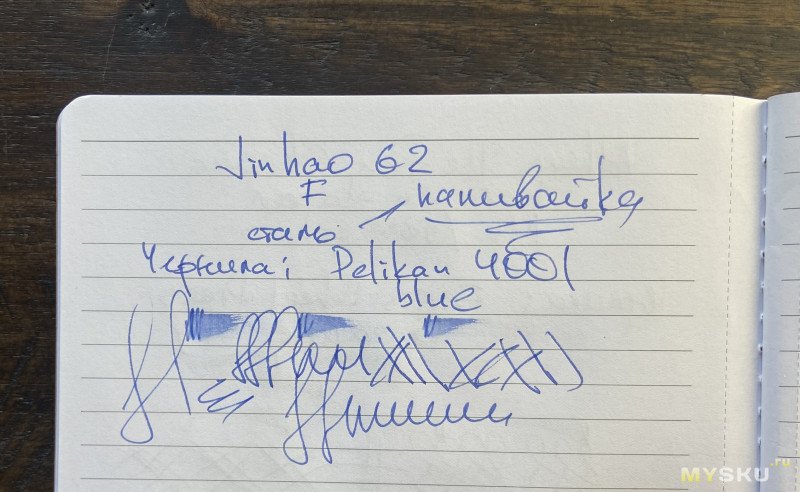 Jinhao 62
F
напивайка
сталь
Чернила: Pelikan 4001
blue
MYSKU.ru